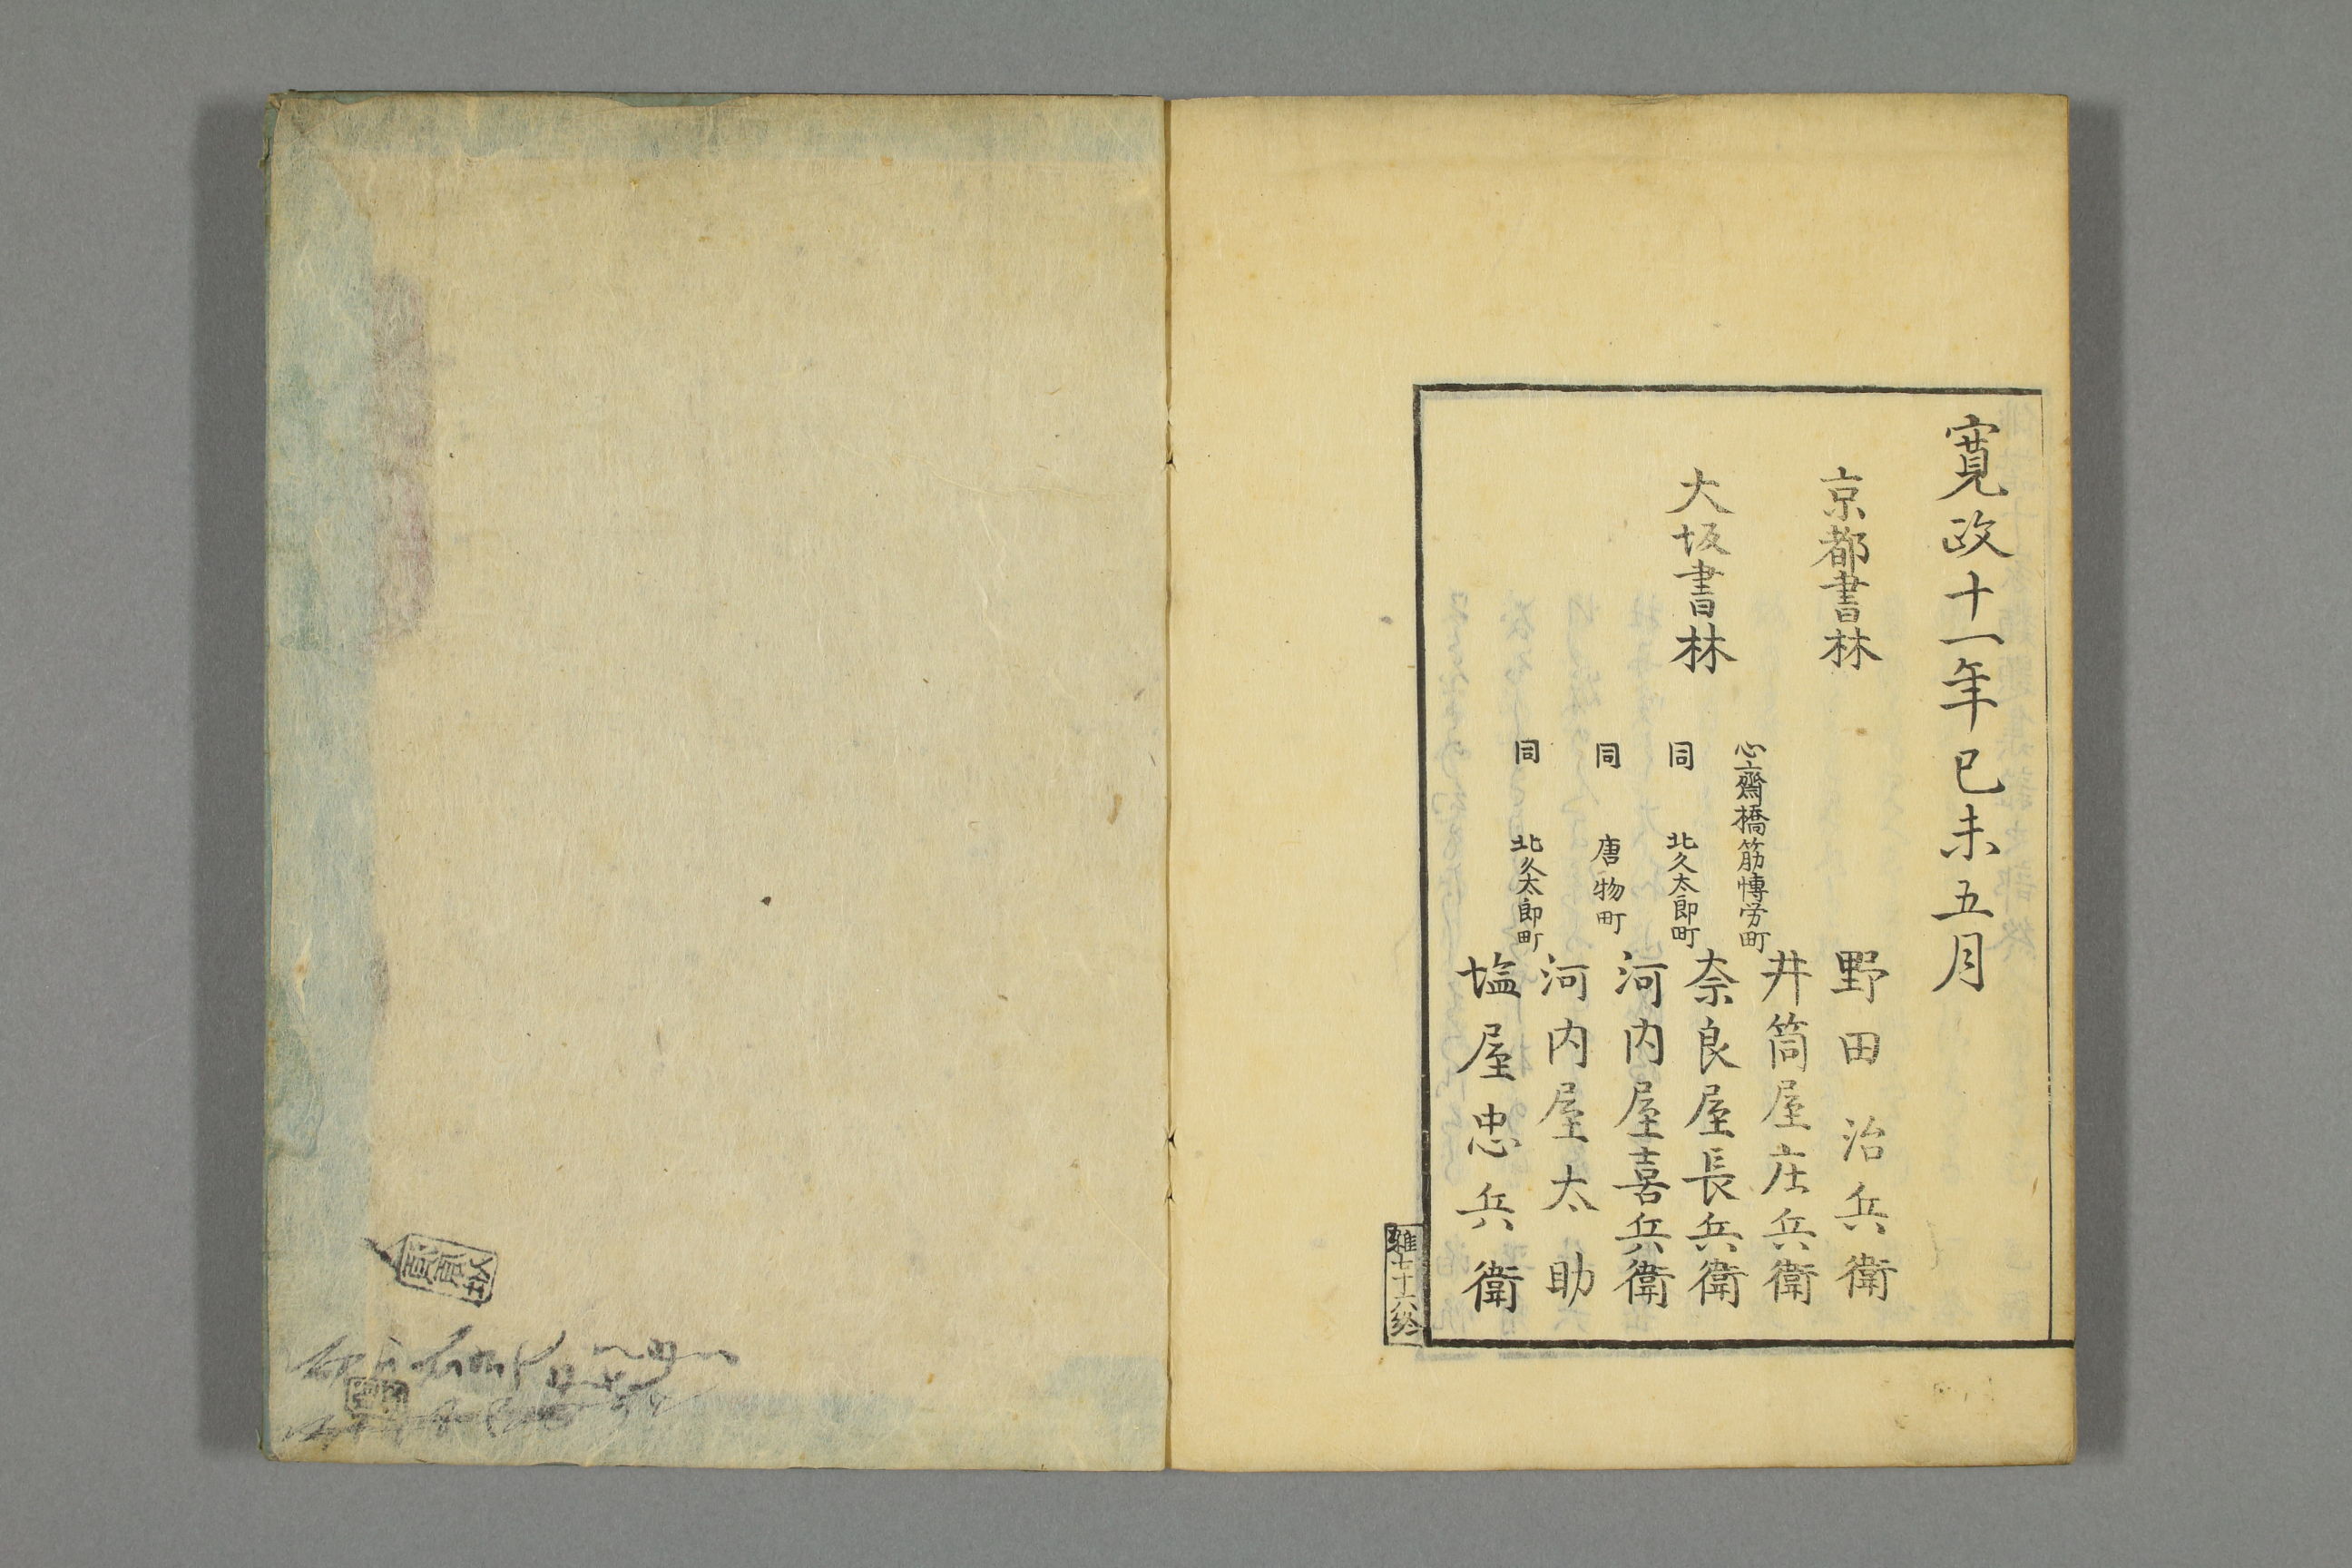 寛政十一年己未五月
京都書林
野田治兵衛
井筒屋庄兵衛
大坂書林
心齋橋筋博労町
奈良屋長兵衛
同 北久太郎町
河内屋喜兵衛
同 唐物町
河内屋太助
同 北久太郎町
塩屋忠兵衛
雑七十六終